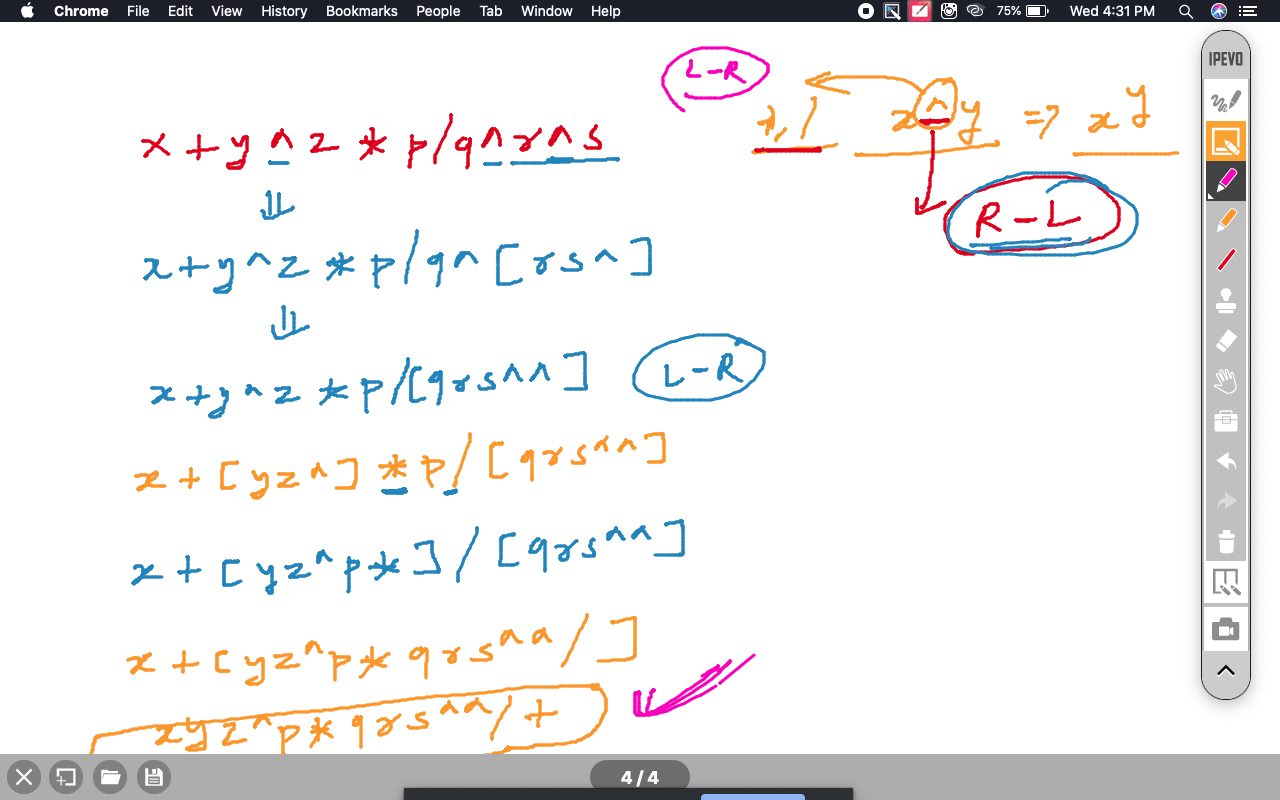 Chrome File Edit View History Bookmarks People Tab Window Help 75% Wed 4:31 PM
IPEVO
L-R
x^y => x^y
R-L
x+y^z*p/q^r^s
x+y^z*p/q^[rs^]
x+y^z*p/[qrs^^] L-R
x+[yz^]*p/[qrs^^]
x+[yz^p*]/[qrs^^]
x+[yz^p*qrs^^/]
xyz^p*qrs^^/+
4/4